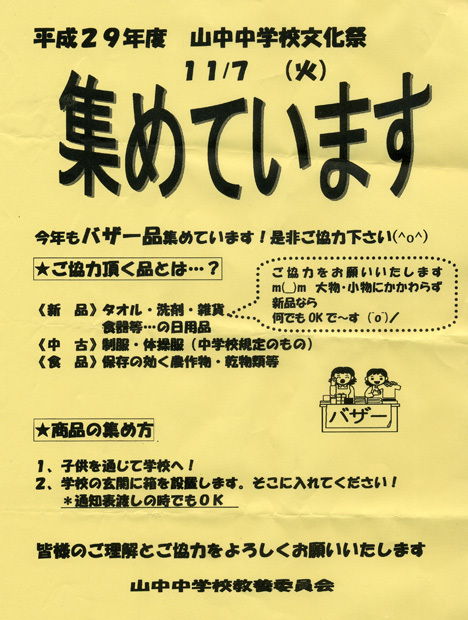 平成29年度 山中中学校文化祭
11/7 (火)
集めています
今年もバザー品集めています!是非ご協力下さい(^o^)
★ご協力頂く品とは…?
ご協力をお願いいたします
m(_)m 大物・小物にかかわらず
新品なら
何でもOKで〜す (¨o¨)/
《新 品》タオル・洗剤・雑貨
食器等…の日用品
《中 古》制服・体操服(中学校規定のもの)
《食 品》保存の効く農作物・乾物類等
バザー
★商品の集め方
1、子供を通じて学校へ!
2、学校の玄関に箱を設置します。そこに入れてください!
*通知表渡しの時でもOK
皆様のご理解とご協力をよろしくお願いいたします
山中中学校教養委員会